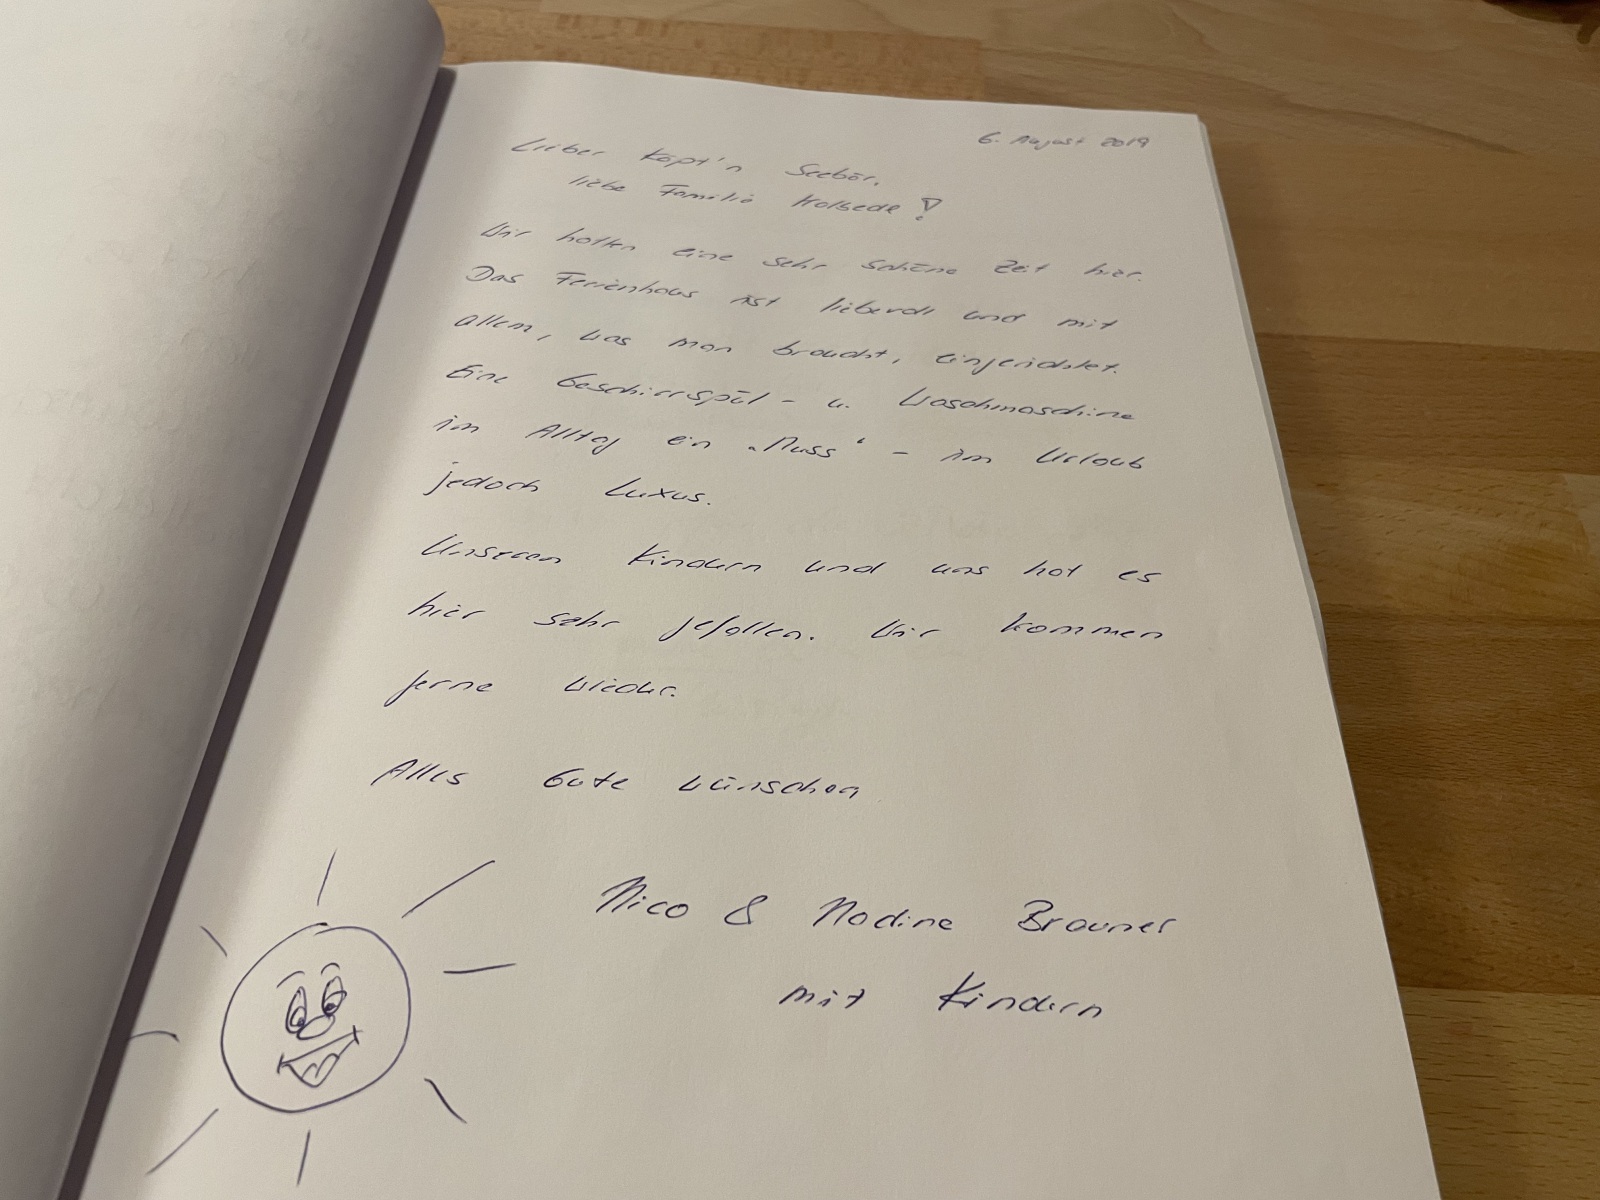 6. August 2019
Lieber Käpt'n Seebär,
liebe Familie !
Wir hatten eine sehr schöne Zeit hier.
Das Ferienhaus ist liebevoll und mit
allem, was man braucht, eingerichtet.
Eine Geschirrspül- u. Waschmaschine
im Alltag ein „Muss“ - im Urlaub
jedoch Luxus.
Unseren Kindern und uns hat es
hier sehr gefallen. Wir kommen
gerne wieder.
Alles Gute wünschen
Nico & Nadine Brauner
mit Kindern